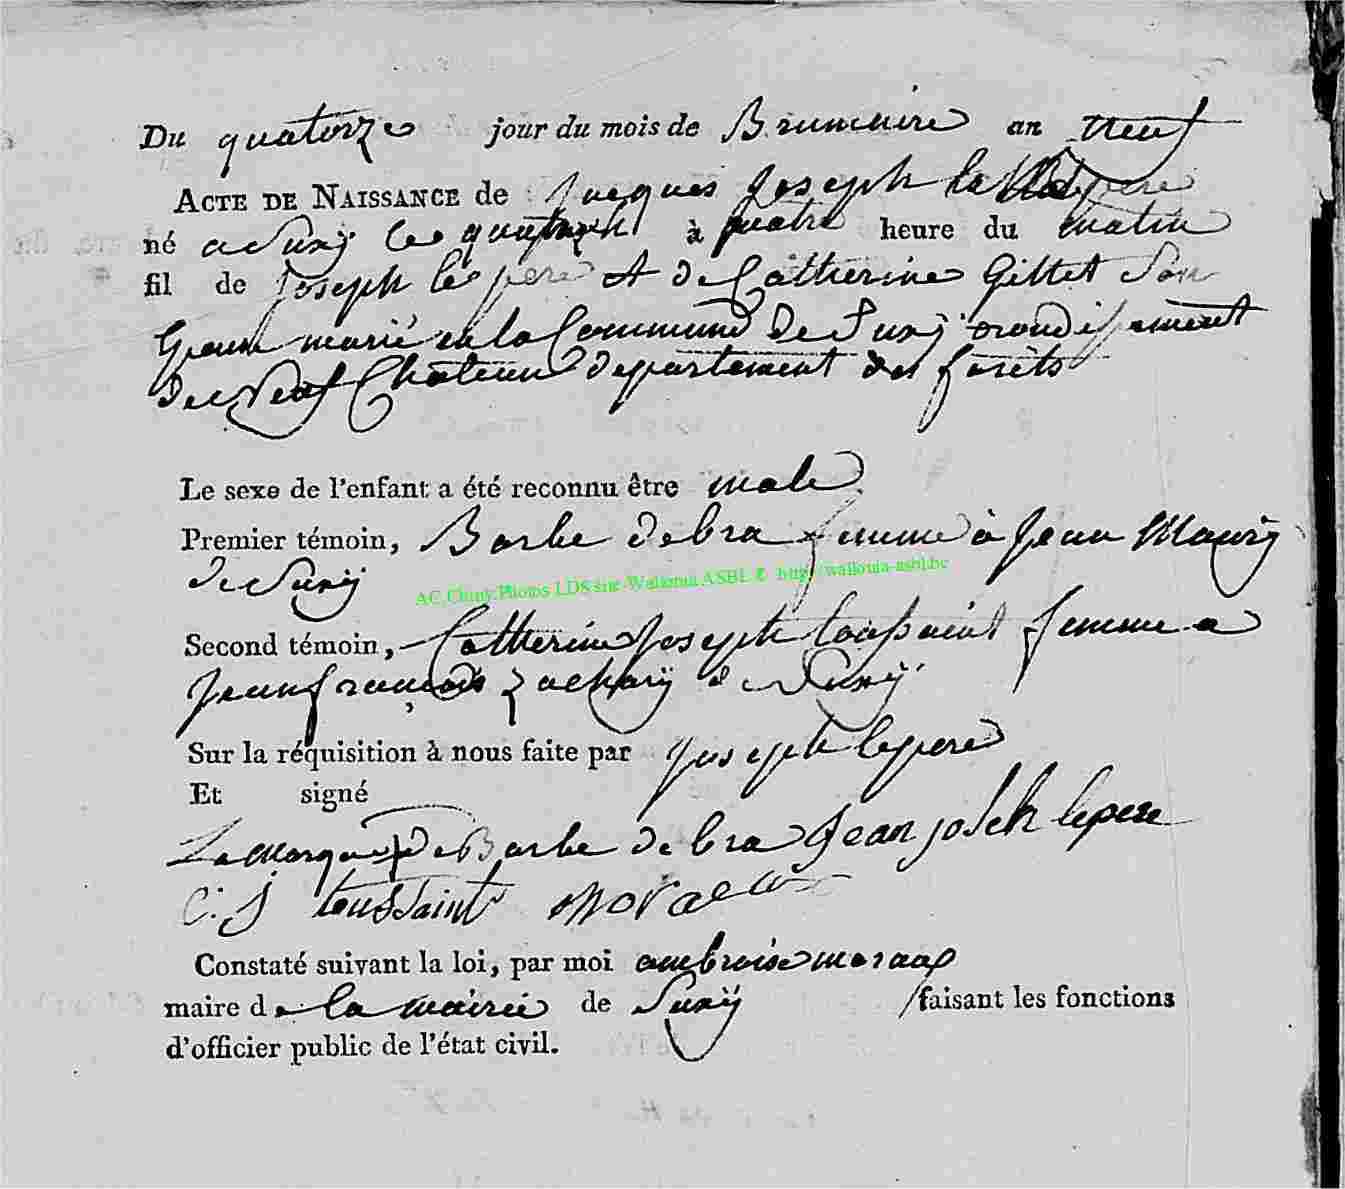 Du quatorze jour du mois de Brumaire an neuf
ACTE DE NAISSANCE de Jacques Joseph le pere
né a Suxÿ le quatorze à quatre heure du matin
fil de Joseph le pere et de Catherine Gillet son
marié en la Commune de Suxÿ arondissement
de Neuf Chateau departement des forêts
Le sexe de l'enfant a été reconnu être male
Premier témoin, Barbe debra femme à Jean
de Suxÿ
AC,Chiny.Photos LDS sur Wallonia ASBL © http://wallonia-asbl.be
Second témoin, Catherine Joseph toussaint femme a
Jean françois Zacharÿ de Suxÿ
Sur la réquisition à nous faite par Joseph lepere
Et signé
La marque de Barbe debra Jean joseh lepere
C. J toussaint
Constaté suivant la loi, par moi ambroise moraux
maire de la mairie de Suxÿ faisant les fonctions
d'officier public de l'état civil.